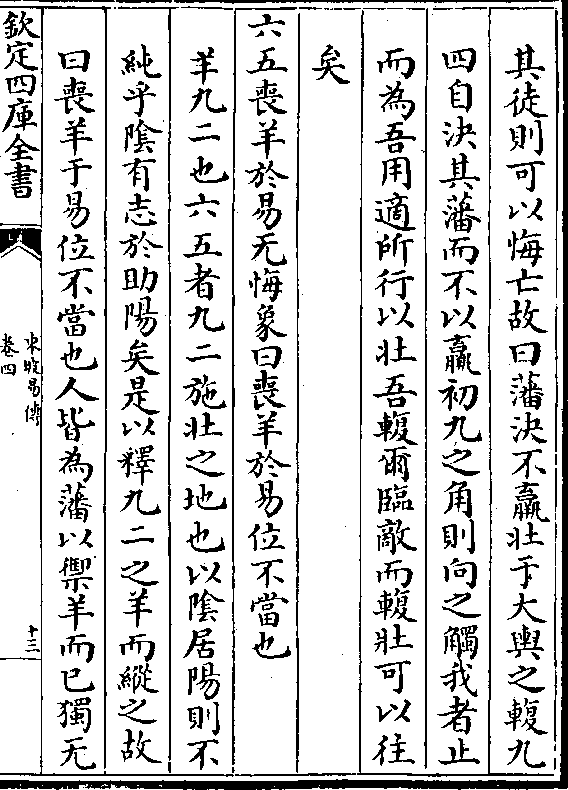 其徒則可以悔亡故曰藩決不羸壯于大輿之輹九
四自決其藩而不以羸初九之角則向之觸我者止
而為吾用適所行以壯吾輹爾臨敵而輹壯可以往
矣
六五喪羊於易无悔象曰喪羊於易位不當也
羊九二也六五者九二施壯之地也以陰居陽則不
純乎陰有志於助陽矣是以釋九二之羊而縱之故
曰喪羊于易位不當也人皆為藩以禦羊而已獨无
欽定四庫全書
東坡易傳
卷四
十三